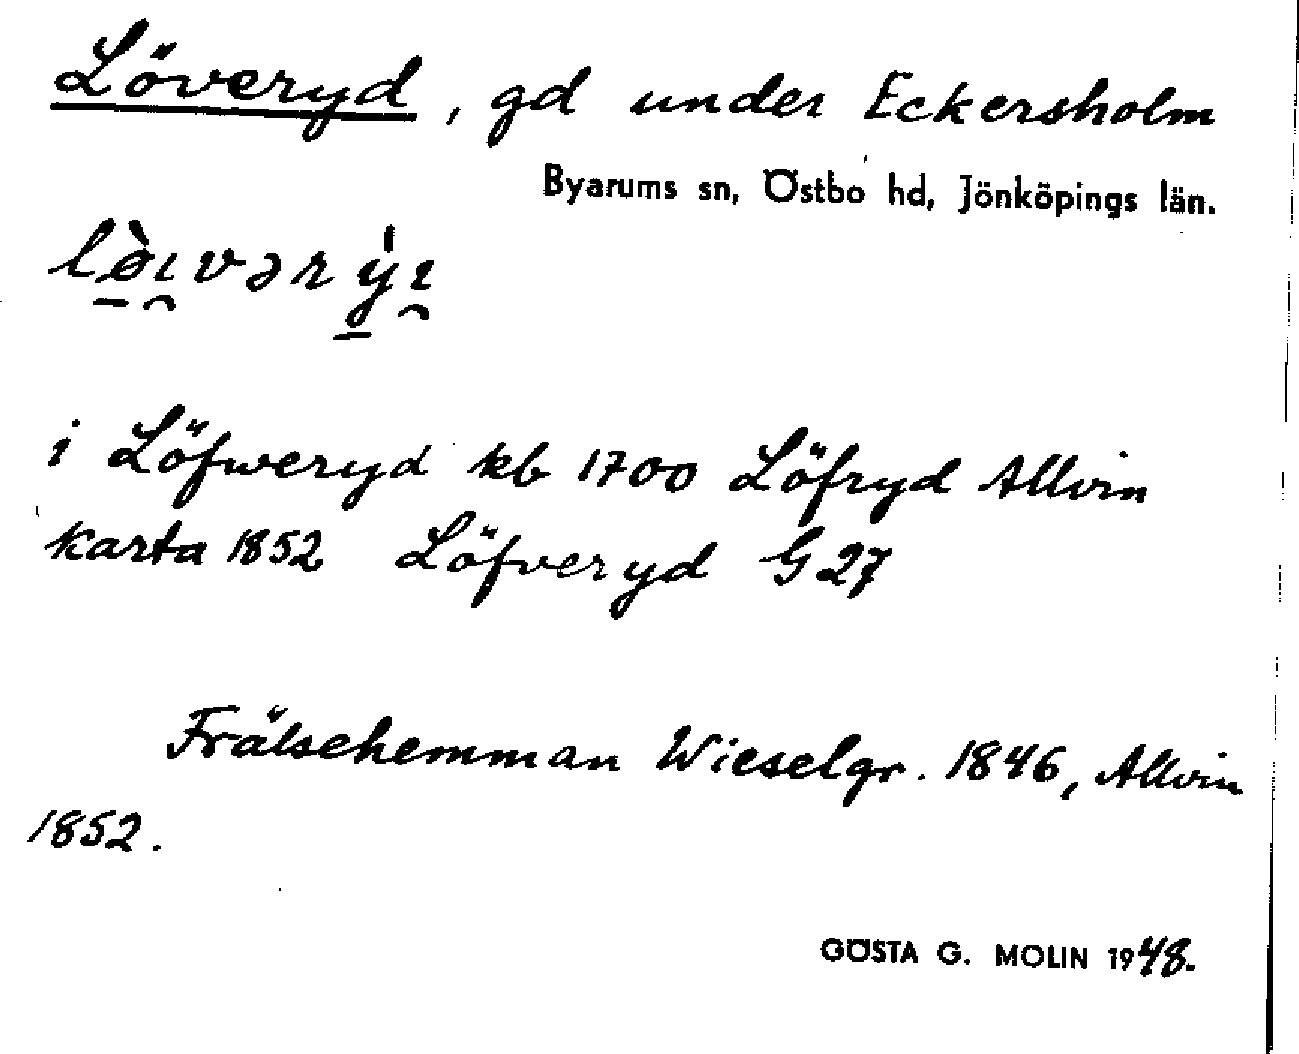 Löveryd, gd under Eckersholm
Byarums sn, Östbo hd, Jönköpings län.
lø̀ɩvərýɩ
i Löfweryd kb 1700 Löfryd Allvin
karta 1852 Löfveryd G 27
Frälsehemman Wieselgr. 1846, Allvin
1852.
GÖSTA G. MOLIN 1948.